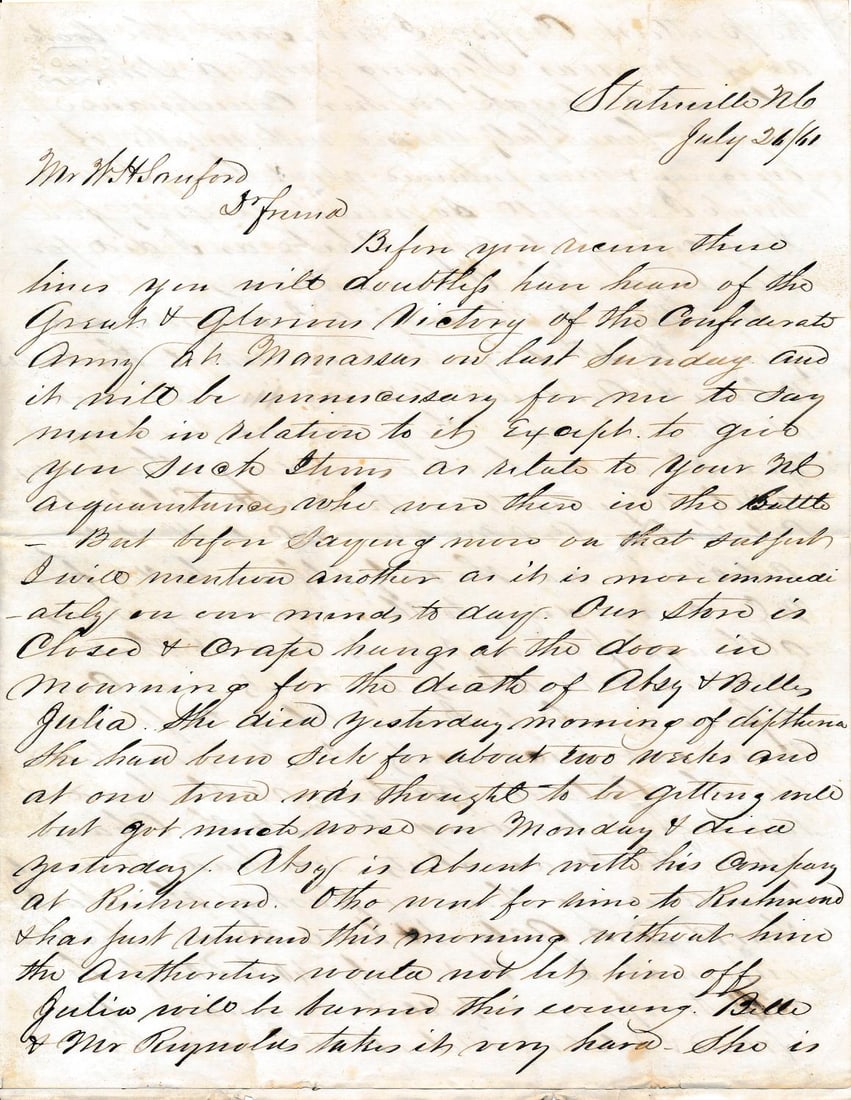 Statesville NC
July 26/61
Mr W H Sanford
Dr friend
Before you receive these
lines you will doubtless have heard of the
Great & Glorious Victory of the Confederate
Army at Manassas on last Sunday and
it will be unnecessary for me to say
much in relation to it Except to give
you such Items as relate to your NC
acquaintances who were then in the Battle
- But before saying more on that subject
I will mention another as it is more immedi
-ately on our minds to day. Our store is
Closed & Crape hangs at the door in
mourning for the death of Absy & Belles
Julia. She died yesterday morning of diptheria
She had been sick for about two weeks and
at one time was thought to be getting well
but got much worse on Monday & died
yesterday. Absy is absent with his Company
at Richmond. Otho went for him to Richmond
& has just returned this morning without him
the Authorities would not let him off
Julia will be burried this evening. Belle
& Mr Reynolds takes it very hard - She is